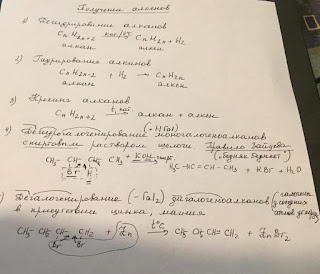 Получение алкенов
1) Дегидрирование алканов
CnH2n+2 кат/t° CnH2n + H2
алкан алкен
2) Гидрирование алкинов
CnH2n-2 + H2 → CnH2n
алкин алкен
3) Крекинг алканов
CnH2n+2 t, кат алкан + алкен
(-HГal)
4) Дегидрогалогенирование моногалогеналканов
спиртовым раствором щелочи Правило Зайцева
("бедные беднеют")
CH3 - CH - CH - CH3 + KOH спирт
Br H
H3C - HC = CH - CH3 + KBr + H2O
Дегалогенирование (-Гal2) дигалогеналканов
в присутствии цинка, магния
CH3 CH2 CH - CH2 + Zn t°C CH3 CH2 CH = CH2 + ZnBr2
Br Br